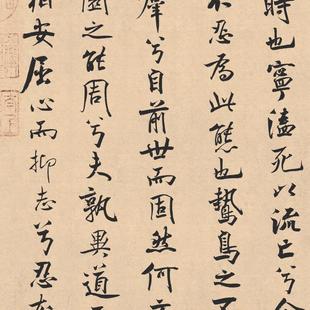 時也寧溘死以流亡兮余
不忍為此態也鷙鳥之不
羣兮自前世而固然何方
圜之能周兮夫孰異道而
相安屈心而抑志兮忍